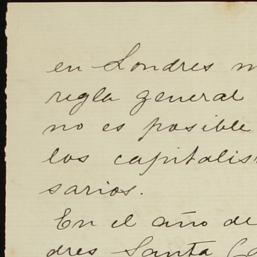 en Londres
regla general
no es posible
los capitalis
sarios.
En el año de
dres Santa